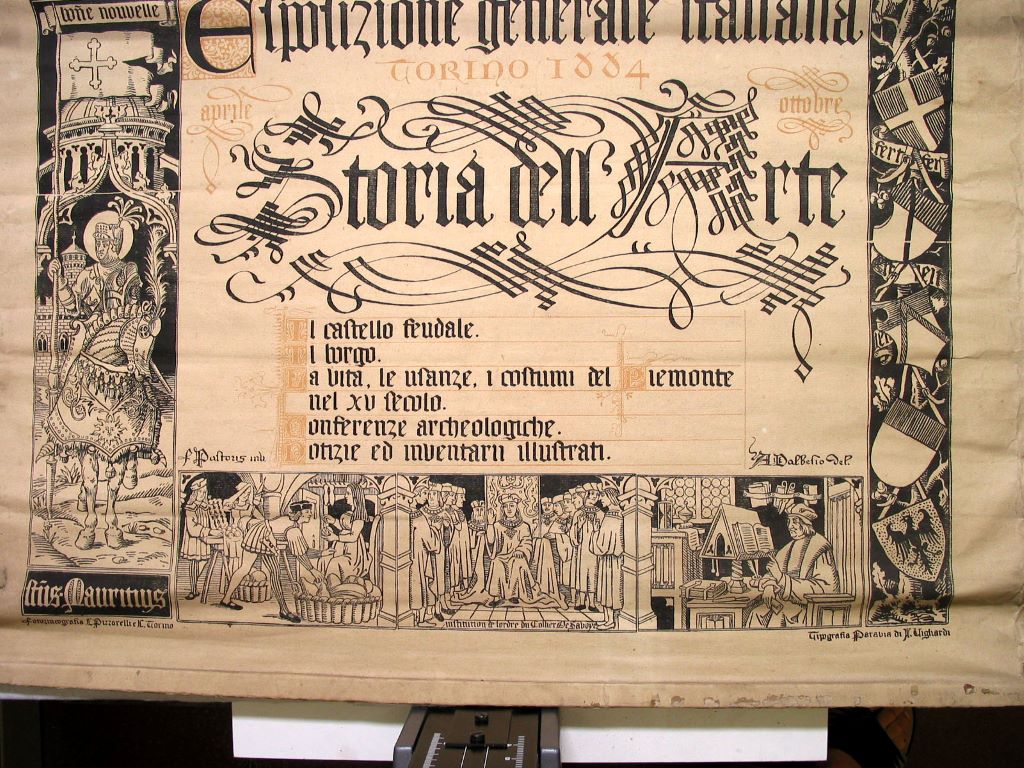 bõne nouvelle
Esposizione generale italiana
TORINO 1884
aprile
ottobre
Storia dell'Arte
fert fert
Il castello feudale.
Il borgo.
La vita, le usanze, i costumi del Piemonte
nel XV secolo.
Conferenze archeologiche.
Notizie ed inventarii illustrati.
f. Pastoris inv.
A Dalbesio del.
Sṫus Mauritius
institution de lordre du Collier De Savoye
Fotozincografia L Pizzarelli e C. Torino
Tipografia Paravia di I. Vigliardi